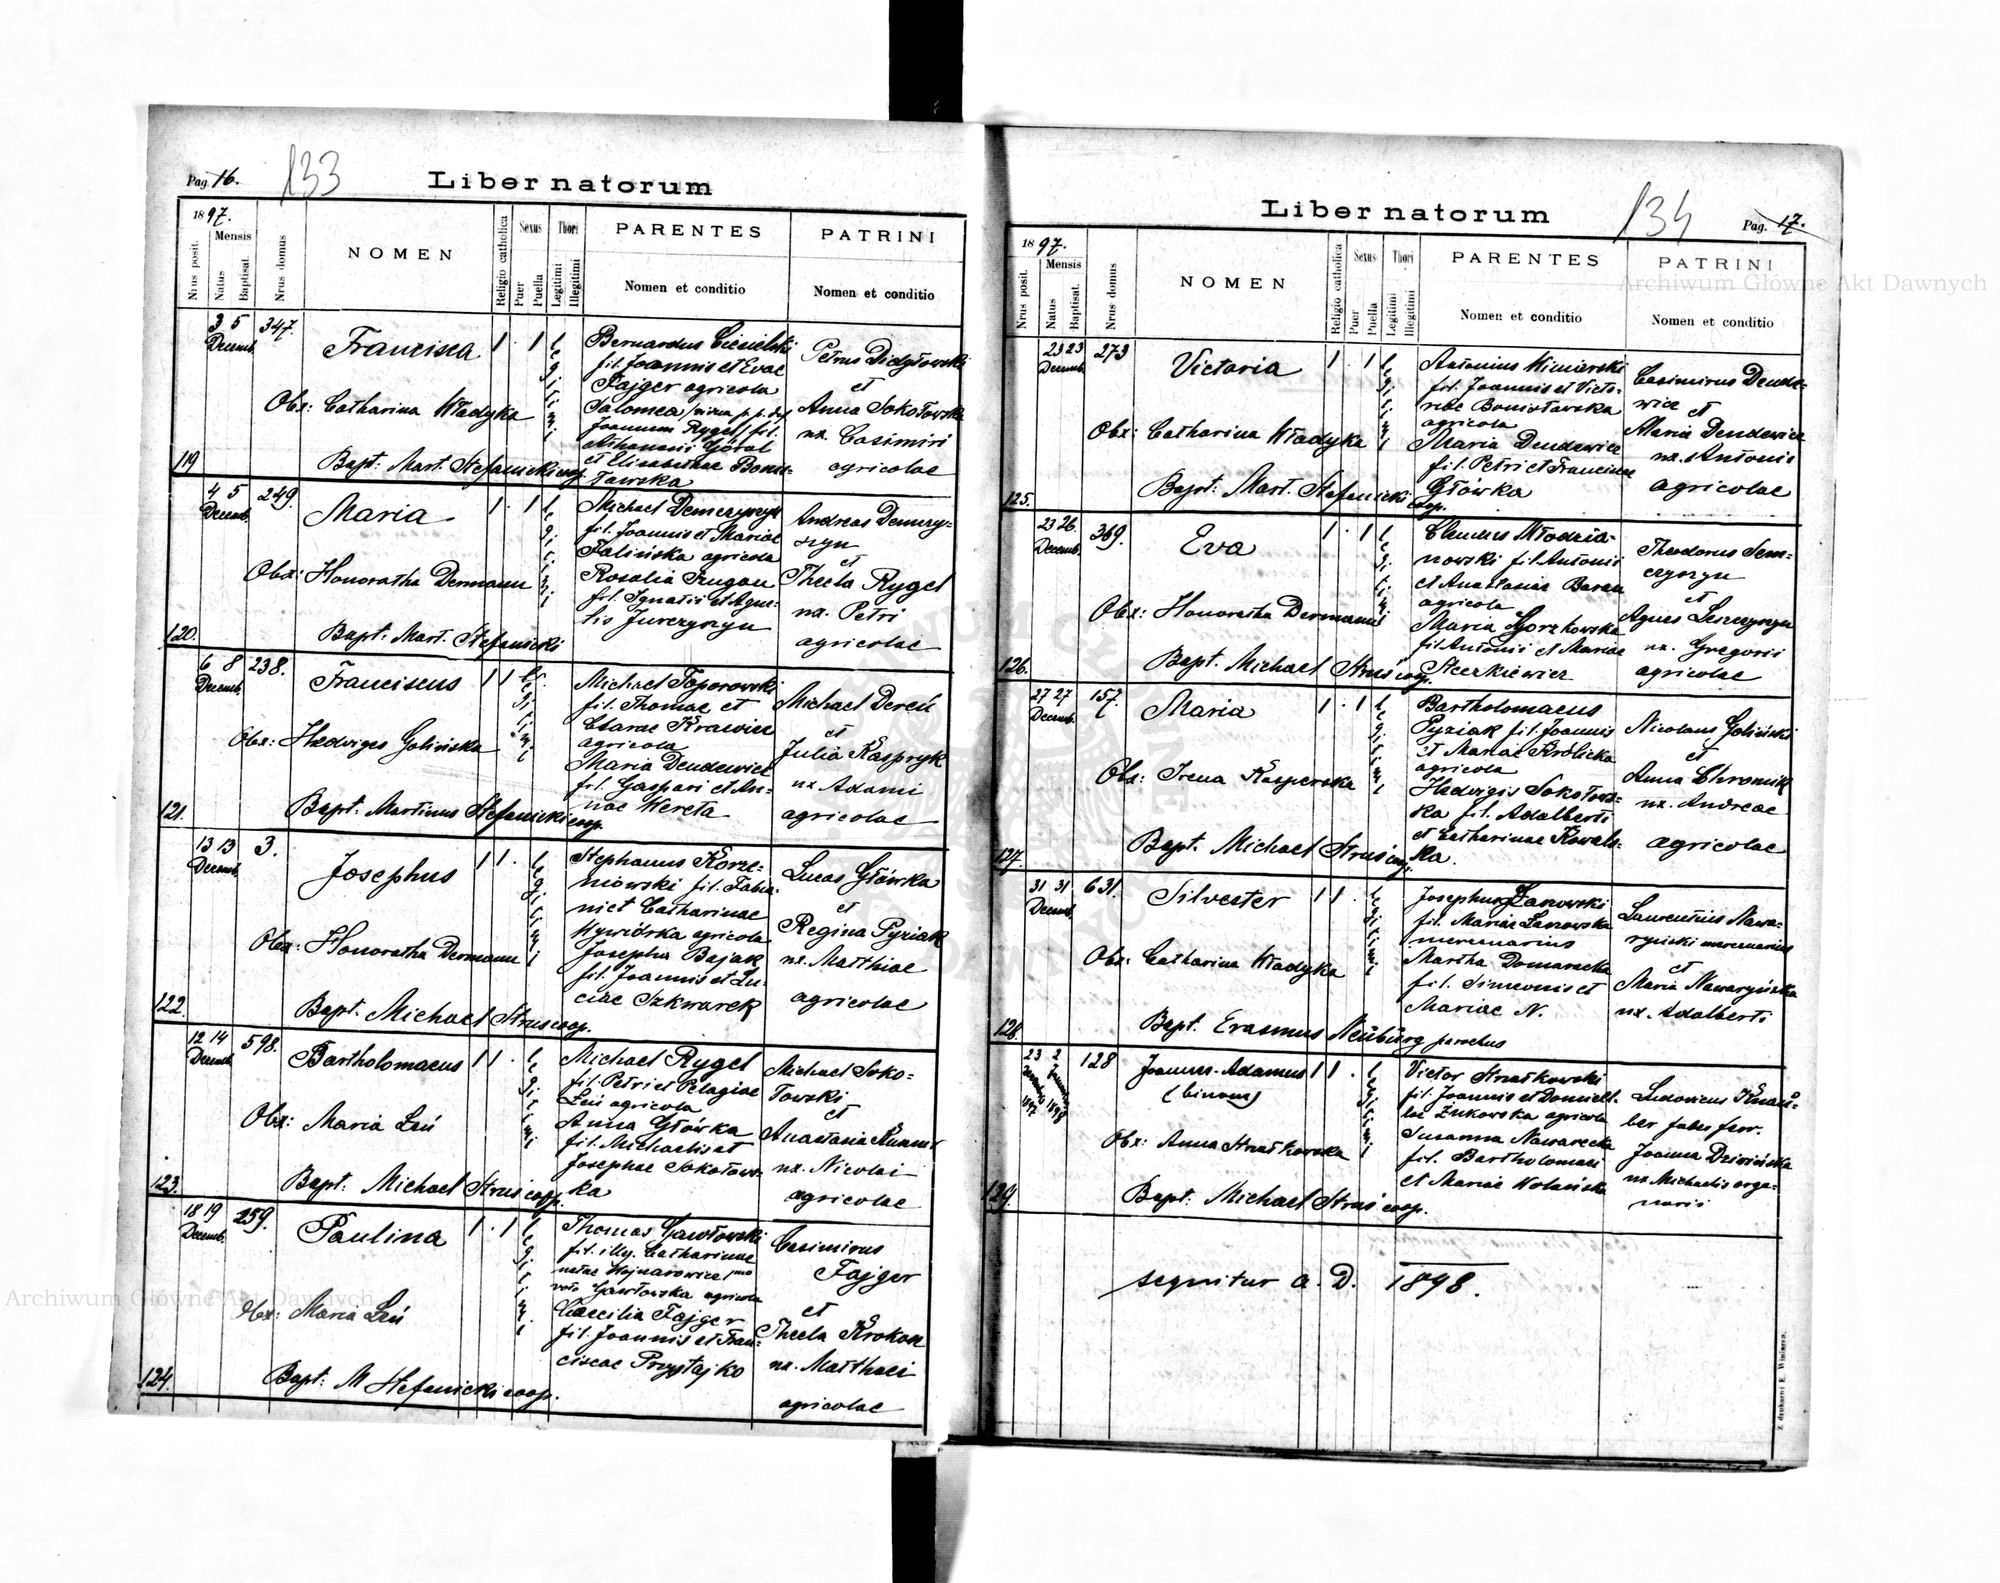 Pag. 16.
133
Liber natorum
1897.
Nrus posit.
Mensis
Natus
Baptisat.
Nrus domus
NOMEN
Religio catholica
Sexus
Puer
Puella
Thori
Legitimi
Illegitimi
PARENTES
Nomen et conditio
PATRINI
Nomen et conditio
119
3 5
Decemb.
347.
Francisca
1 . 1
legitimi
Obx: Catharina Władyka
Bapt: Mart. Stefanicki coop.
Bernardus Ciesielski
fil. Joannis et Evae
Fajger agricola
Salomea (vidua p. p. def.
Joannem Rygel) fil.
Athanasii Góral
et Elisabethae Bonis-
ławska
Petrus Didyłowski
et
Anna Sokołowska
ux. Casimiri
agricolae
120.
4 5
Decemb.
249.
Maria
1 . 1
legitimi
Obx: Honoratha Dermann
Bapt: Mart. Stefanicki
Michael Demczyszyn
fil. Joannis et Mariae
Falińska agricola
Rosalia Frugan
fil. Ignatii et Agne-
tis Jurczyszyn
Andreas Demczy-
szyn
et
Thecla Rygel
ux. Petri
agricolae
121.
6 8
Decemb.
238.
Franciscus
1 1 .
legitimi
Obx: Hedviges Golińska
Bapt: Martinus Stefanicki coop.
Michael Toporowski
fil. Thomae et
Clarae Krawiec
agricola
Maria Dendewicz
fil. Gaspari et An-
nae Wereta
Michael Dereń
et
Julia Kaspryk
ux Adami
agricolae
122.
13 13
Decemb.
3.
Josephus
1 1 .
legitimi
Obx: Honoratha Dermann
Bapt. Michael Strus coop.
Stephanus Korze-
niowski fil. Fabia-
ni et Catharinae
Wywiórka agricola
Josepha Bajak
fil. Joannis et Lu-
ciae Szkwarek
Lucas Główka
et
Regina Pyziak
ux. Matthiae
agricolae
123.
12 14
Decemb.
598.
Bartholomaeus
1 1 .
legitimi
Obx: Maria Leń
Bapt: Michael Strus coop.
Michael Rygel
fil. Petri et Pelagiae
Leń agricola
Anna Główka
fil. Michaelis et
Josephae Sokołows-
ka
Michael Soko-
łowski
et
Anastasia
ux. Nicolai
agricolae
124.
18 19
Decemb.
259.
Paulina
1 . 1
legitimi
Obx: Maria Leń
Bapt: M Stefanicki coop.
Thomas Gawłowski
fil. illeg. Catharinae
natae Wojnarowicz 1mo
voto Gawłowska agricola
Caecilia Fajger
fil. Joannis et Fran-
ciscae Przystajko
Casimirus
Fajger
et
Thecla Krokosz
ux. Matthaei
agricolae
134
Pag. 17.
Liber natorum
1897.
Nrus posit.
Mensis
Natus
Baptisat.
Nrus domus
NOMEN
Religio catholica
Sexus
Puer
Puella
Thori
Legitimi
Illegitimi
PARENTES
Nomen et conditio
PATRINI
Nomen et conditio
125.
23 23
Decemb.
273
Victoria
1 . 1
legitimi
Obx: Catharina Władyka
Bapt: Mart. Stefanicki coop.
Antonius Winiarski
fil. Joannis et Victo-
riae Bonisławska
agricola
Maria Dendewicz
fil. Petri et Franciscae
Główka
Casimirus Dende-
wicz et
Maria Dendewicz
ux. Antonii
agricolae
126.
23 26.
Decemb.
369.
Eva
1 . 1
legitimi
Obx: Honoratha Dermann
Bapt. Michael Strus coop.
Clemens Młodzia-
nowski fil. Antonii
et Anastasiae Baran
agricola
Maria Gorzkowska
fil. Antonii et Mariae
Skerkiewicz
Theodorus Sem-
czyszyn
et
Agnes Leszczyszyn
ux. Gregorii
agricolae
127.
27 27
Decemb.
157
Maria
1 . 1
legitimi
Obx: Irena Kasperska
Bapt. Michael Strus coop.
Bartholomaeus
Pyziak fil. Joannis
et Mariae Królicka
agricola
Hedvigis Sokołows-
ka fil. Adalberti
et Catharinae Kowals-
ka.
Nicolaus Goliński
et
Anna Chromik
ux. Andreae
agricolae
128.
31 31
Decemb.
631.
Silvester
1 1 .
legitimi
Obx: Catharina Władyka
Bapt. Erasmus Neuburg parochus
Josephus Łanowski
fil. Mariae Łanowska
mercenarius
Martha Domarecka
fil. Simeonis et
Mariae N.
Laurentius Nawa-
ryński mercenarius
et
Maria Nawaryńska
ux. Adalberti
129.
23
1897
2
Januarii
1898
128
Joannes-Adamus
(binom)
1 1 .
legitimi
Obx: Anna Strutkowska
Bapt. Michael Strus coop.
Victor Strutkowski
fil. Joannis et Domicel-
lae Żukowska agricola
Susanna Nawarecka
fil. Bartholomaei
et Mariae Wolańska
Ludovicus Knau-
ber faber ferr.
Joanna Dziwińska
ux Michaelis orga-
narii
sequitur a. D. 1898.
Z drukarni E. Winiarza.
Archiwum Główne Akt Dawnych
Archiwum Główne Akt Dawnych